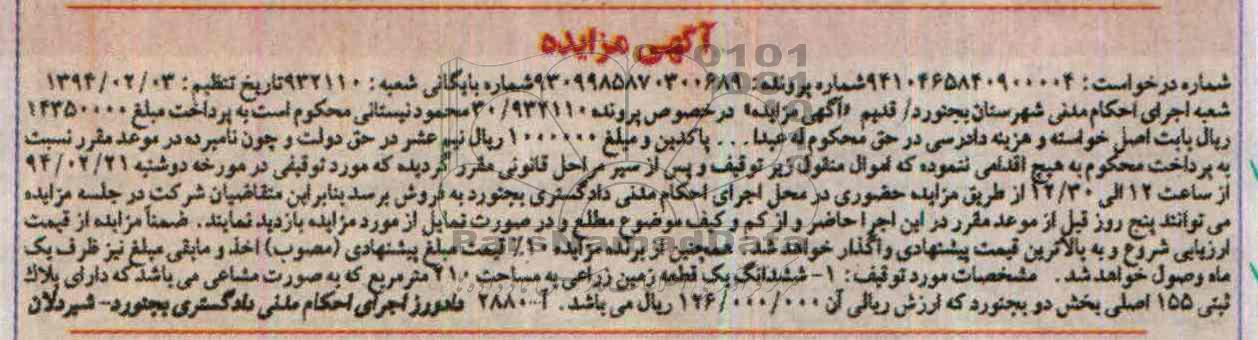 آگهی مزایده
شماره درخواست: ۹۴۱۰۴۶۵۸۴۰۹۰۰۰۰۴ شماره پرونده: ۹۳۰۹۹۸۵۸۷۰۳۰۰۶۸۹ شماره بایگانی شعبه: ۹۳۲۱۱۰ تاریخ تنظیم: ۱۳۹۴/۰۲/۰۳
شعبه اجرای احکام مدنی شهرستان بجنورد/ قدیم «آگهی مزایده» درخصوص پرونده ۳۰/۹۳۲۱۱۰ محمود نیستانی محکوم است به پرداخت مبلغ ۱۴۳۵۰۰۰۰
ریال بابت اصل خواسته و هزینه دادرسی در حق محکوم له عبدا... پاکدین و مبلغ ۱۰۰۰۰۰۰ ریال نیم عشر در حق دولت و چون نامبرده در موعد مقرر نسبت
به پرداخت محکوم به هیچ اقدامی ننموده که اموال منقول زیر توقیف و پس از سیر مراحل قانونی مقرر گردیده که مورد توقیفی در مورخه دوشنبه ۹۴/۰۲/۲۱
از ساعت ۱۲ الی ۱۲/۳۰ از طریق مزایده حضوری در محل اجرای احکام مدنی دادگستری بجنورد به فروش برسد بنابراین متقاضیان شرکت در جلسه مزایده
می توانند پنج روز قبل از موعد مقرر در این اجرا حاضر و از کم و کیف موضوع مطلع و در صورت تمایل از مورد مزایده بازدید نمایند. ضمناً مزایده از قیمت
ارزیابی شروع و به بالاترین قیمت پیشنهادی واگذار خواهد شد. همچنین از برنده مزایده ۱۰٪ قیمت مبلغ پیشنهادی (مصوب) اخذ و مابقی مبلغ نیز ظرف یک
ماه وصول خواهد شد. مشخصات مورد توقیف: ۱- ششدانگ یک قطعه زمین زراعی به مساحت ۲۱۰ مترمربع که به صورت مشاعی می باشد که دارای پلاک
ثبتی ۱۵۵ اصلی بخش دو بجنورد که ارزش ریالی آن ۱۲۶/۰۰۰/۰۰۰ ریال می باشد. دادورز اجرای احکام مدنی دادگستری بجنورد- شیردلان
ParsNamadData